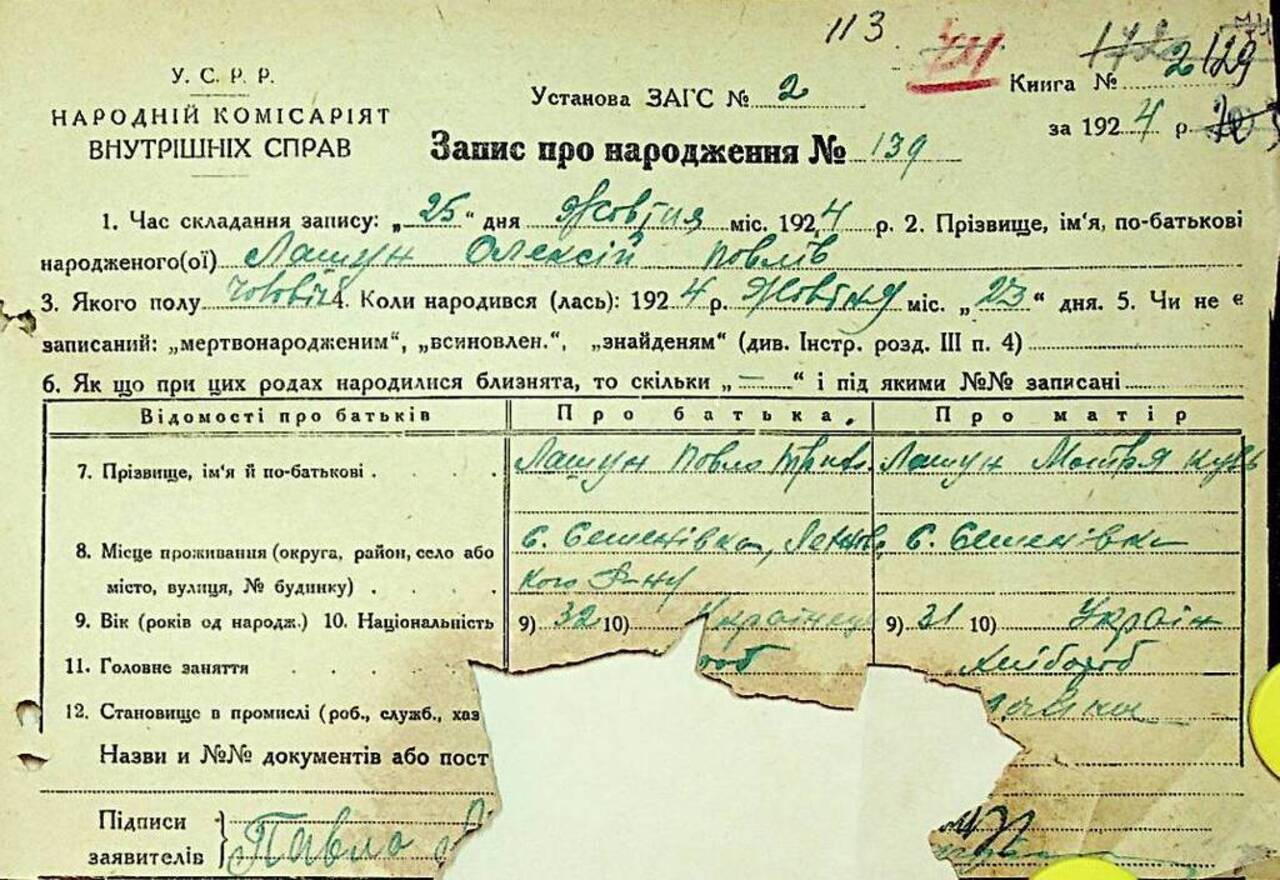 113
У. С. Р. Р.
НАРОДНІЙ КОМІСАРІЯТ
ВНУТРІШНІХ СПРАВ
Установа ЗАГС № 2
Книга № 2 129
за 1924 р.
Запис про народження № 139
1. Час складання запису: „25“ дня Жовтня міс. 1924 р. 2. Прізвище, ім'я, по-батькові
народженого(ої) Лашун Олексій Повлів
3. Якого полу Чоловіч 4. Коли народився (лась): 1924 р. Жовтня міс. „23“ дня. 5. Чи не є
записаний: „мертвонародженим“, „всиновлен.“, „знайденям“ (див. Інстр. розд. III п. 4)
6. Як що при цих родах народилися близнята, то скільки „—“ і під якими №№ записані
Відомості про батьків Про батька. Про матір
7. Прізвище, ім'я й по-батькові Лашун Повло Лашун Мотря
8. Місце проживання (округа, район, село або С. Семенівка, С. Семенівка
місто, вулиця, № будинку) кого Р-ну
9. Вік (років од народж.) 10. Національність 9) 32 10) Українец 9) 31 10) Україн
11. Головне заняття роб Хлібороб
12. Становище в промислі (роб., служб., хаз
Назви и №№ документів або пост
Підписи
заявителів Павло